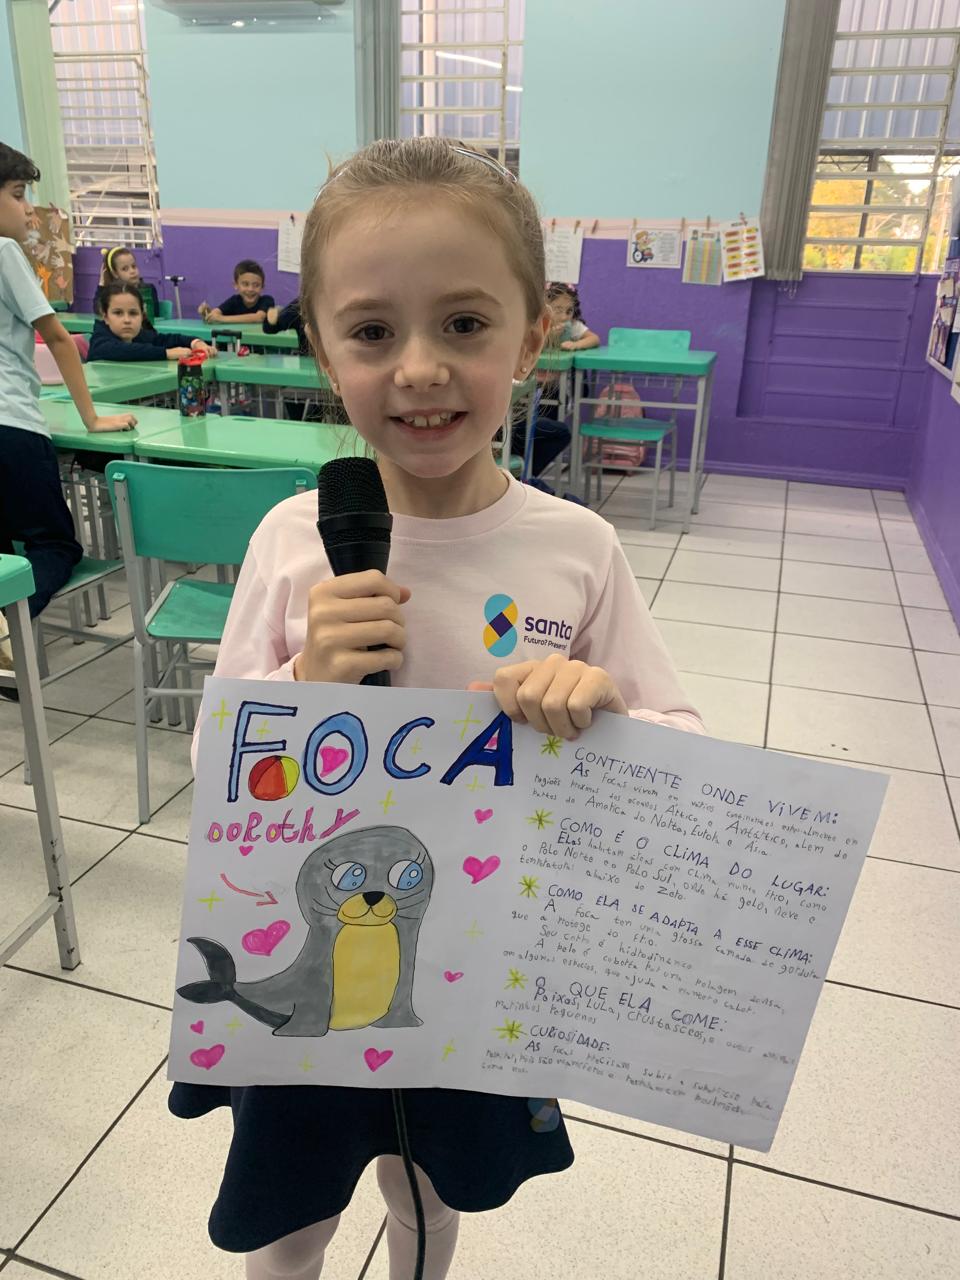 santa
Futuro? Presente!
FOCA
DOROTHY
CONTINENTE ONDE VIVEM:
AS FOCAS vivem em vários continentes especialmente em
regiões próximas dos oceanos Ártico e Antártico, além de
partes da América do Norte, Europa e Ásia.
COMO É O CLIMA DO LUGAR:
Elas habitam áreas com clima muito frio, como
o Polo Norte e o Polo Sul, onde há gelo, neve e
temperatura abaixo de zero.
COMO ELA SE ADAPTA A ESSE CLIMA:
A foca tem uma grossa camada de gordura
que a protege do frio.
Seu corpo é hidrodinâmico
A pele é coberta por uma pelagem densa,
em algumas espécies, que ajuda a manter o calor.
O QUE ELA COME:
Peixes, Lula, crustasceos, e outros animais
marinhos pequenos
CURIOSIDADE:
AS focas precisam subir a superfície para
respirar, pois são mamíferos e respiram com pulmões
como nós.